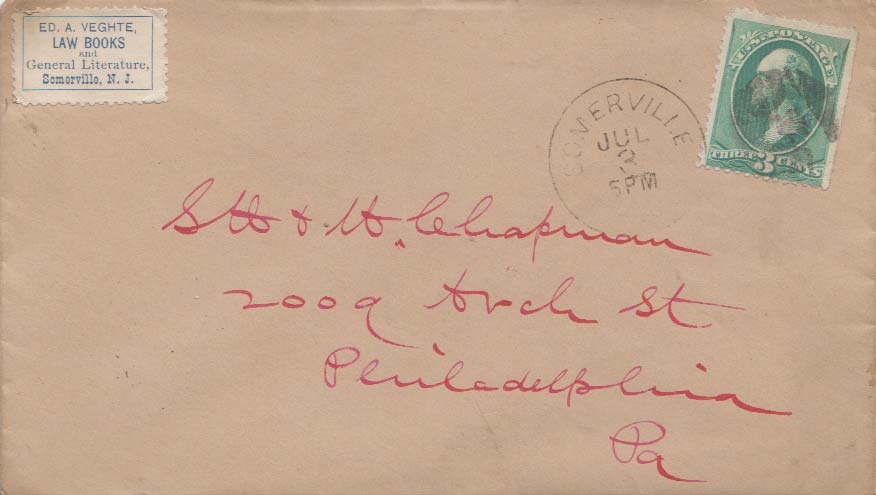 ED. A. VEGHTE,
LAW BOOKS
and
General Literature,
Somerville, N. J.
U.S. POSTAGE
THREE 3 CENTS
SOMERVILLE
JUL
2
5PM
& H. Chapman
2009 Arch St
Philadelphia
Pa